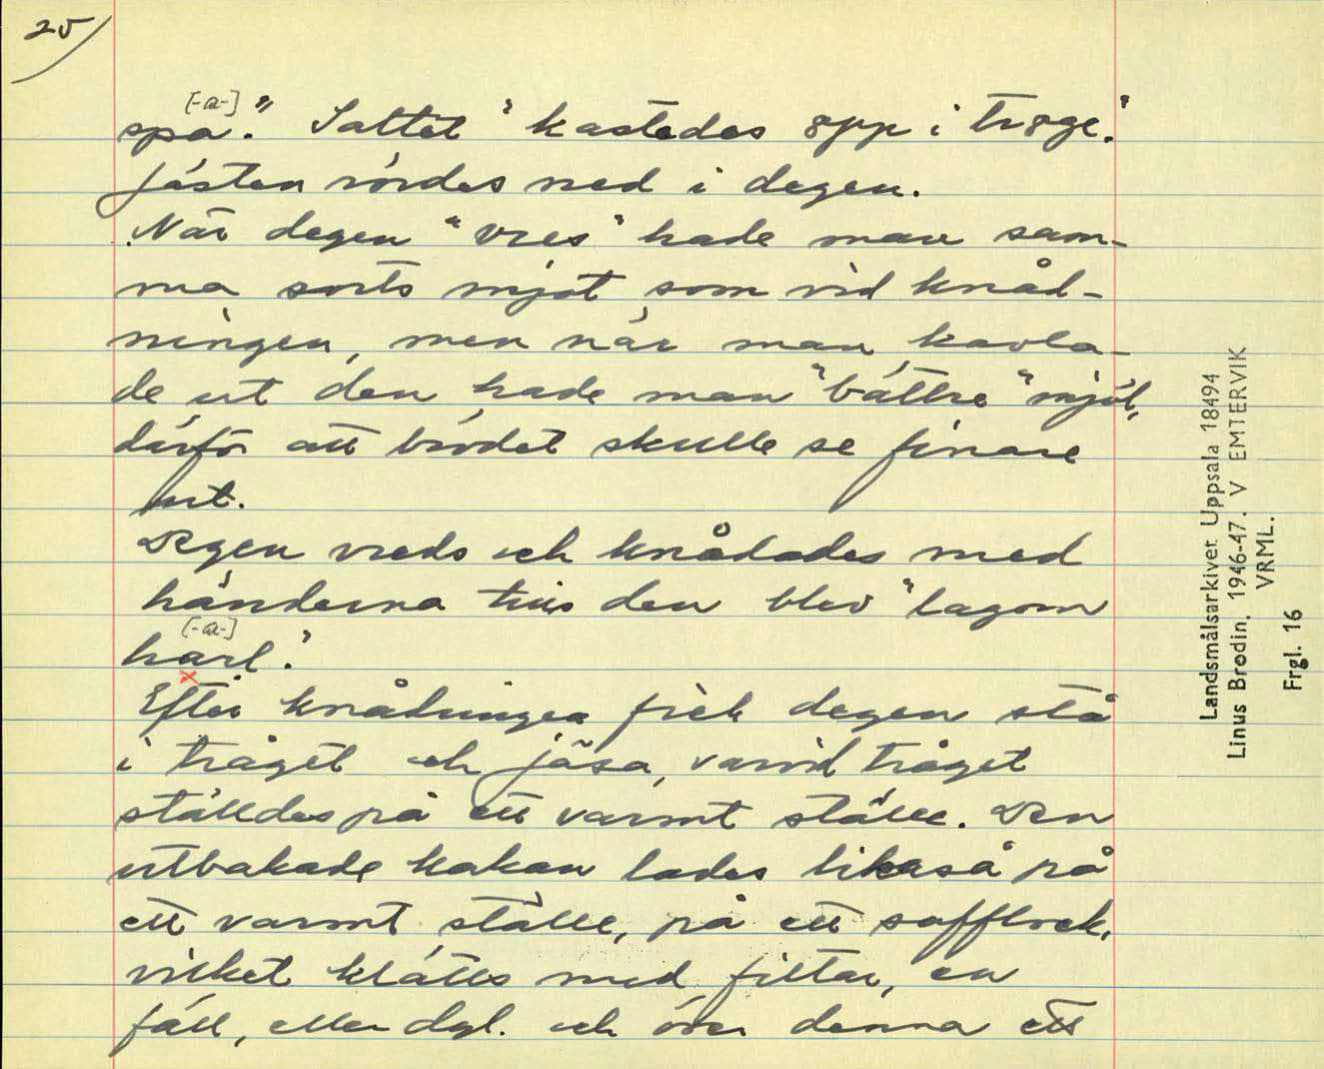 25
[-a-]
spa." Saltet "kastedes opp i trøge."
Jästen rördes ned i degen.
När degen "vres" hade man sam-
ma sorts mjöl som vid knåd-
ningen, men när man kavla-
de ut den hade man "bättre" mjöl,
därför att brödet skulle se finare
ut.
Degen vreds och knådades med
händerna tills den blev "lagom
[-a-]
harl."
x
Efter knådningen fick degen stå
i tråget och jäsa, varvid tråget
ställdes på ett varmt ställe. Den
utbakade kakan lades likaså på
ett varmt ställe, på ett sofflock,
vilket klätts med filtar, en
fäll, eller dyl. och över denna ett
Landsmålsarkivet Uppsala 18494
Linus Brodin. 1946-47. V EMTERVIK
VRML.
Frgl. 16